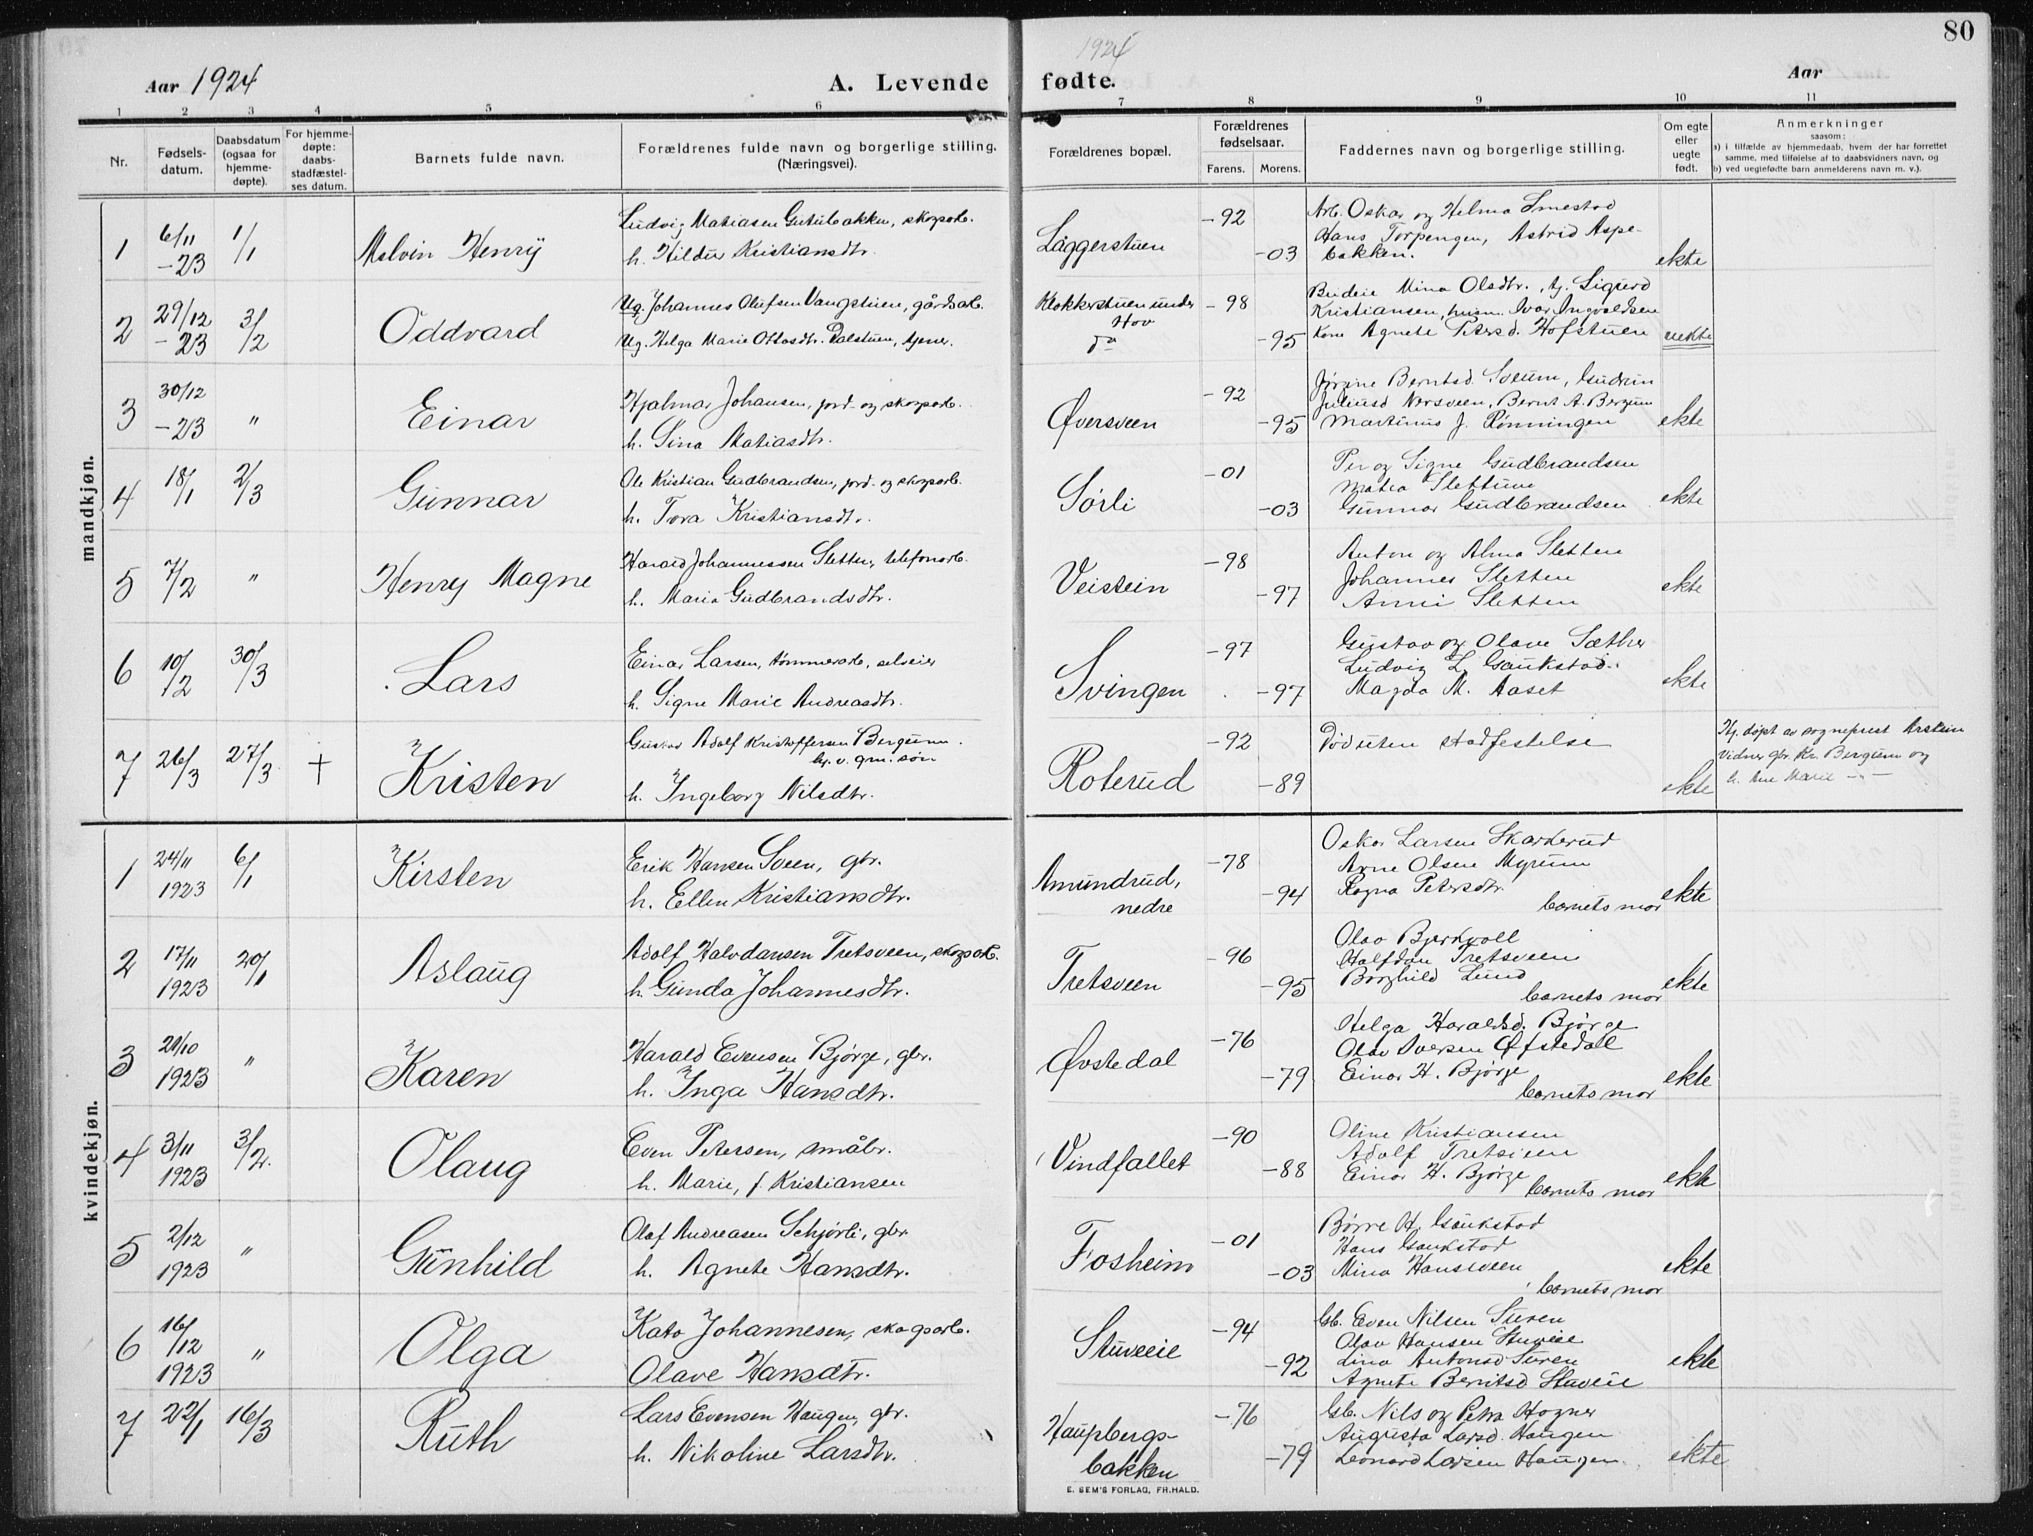 80
1924
Aar 1924 A. Levende fødte. Aar
1 2 3 4 5 6 7 8 9 10 11
Nr.
Fødsels-
datum.
Daabsdatum
(ogsaa for
hjemme-
døpte).
For hjemme-
døpte:
daabs-
stadfæstel-
ses datum.
Barnets fulde navn.
Forældrenes fulde navn og borgerlige stilling.
(Næringsvei).
Forældrenes bopæl.
Forældrenes
fødselsaar.
Farens. Morens.
Faddernes navn og borgerlige stilling.
Om egte
eller
uegte
født.
Anmerkninger
saasom:
a) i tilfælde av hjemmedaab, hvem der har forrettet
samme, med tilføielse af to daabsvidners navn, og
b) ved uegtefødte barn anmelderens navn m. v.).
mandkjøn.
1 6/11 -23 1/1 Malvin Henry
Ludvig Matiasen Gutubakken, skogsarb.
h. Hildur Kristiansdtr.
Låggerstuen -92 -03
Arb. Oskar og Helma Smestad
Hans Torpengen, Astrid Aspe-
bakken. ekte
2 29/12 -23 3/2 Oddvard
Ug. Johannes Olufsen Vangstuen, gårdsarb.
Ug. Helga Marie Ottosdtr. Dalstuen, tjener.
Klokkerstuen under
Hov
do -98 -95
Budeie Mina Olsdtr., tj. Sigurd
Kristiansen, husm. Ivar Ingvaldsen
Kone Agnete Petersd. Hofstuen uekte
3 30/12 -23 " Einar
Hjalmar Johansen, jord- og skogsarb.
h. Sina Matiasdtr.
Øversveen -92 -95
Jørgine Berntsd. Sveum, Gudrun
Juliusd Nersveen, Bernt A. Bergum
Martinus J. Rønningen ekte
4 18/1 2/3 Gunnar
Ole Kristian Gudbrandsen, jord- og skogsarb.
h. Tora Kristiansdtr.
Sørli -01 -03
Per og Signe Gudbrandsen
Gunnar Gudbrandsen ekte
5 7/2 " Henry Magne
Harald Johannessen Sletten, telefonarb.
h. Maria Gudbrandsdtr.
Veistein -98 -97
Anton og Alma Sletten
Johannes Sletten
Anni Sletten ekte
6 10/2 30/3 Lars
Einar Larsen, tømmerarb., selveier
h. Signe Marie Andreasdtr.
Svingen -97 -97
Gustav og Olave Sæther
Ludvig L. Gaukstad.
Magda M. Aaset ekte
7 26/3 27/3 † Kristen
Gustav Adolf Kristoffersen Bergum.
br. v. gm. søn
h. Ingeborg Nilsdtr.
Roterud -92 -89
Død uten stadfestelse ekte
Hj. døpt av sogneprest Arstein
Vidner gbr. Kr. Bergum og
h. Ane Marie -"-
kvindekjøn.
1 24/11 1923 6/1 Kirsten
Erik Hansen Sveen, gbr.
h. Ellen Kristiansdtr.
Amundrud,
nedre -78 -94
Oskar Larsen Skarderud
Arne Olsen Myrum
Ragna Petersdtr.
barnets mor ekte
2 17/11 1923 20/1 Aslaug
Adolf Halvdansen Tretsveen, skogsarb.
h. Gunda Johannesdtr.
Tretsveen -96 -95
Olav Bjerkvoll
Halfdan Tretsveen
Borghild Lund
barnets mor ekte
3 21/10 1923 " Karen
Harald Evensen Bjørge, gbr.
h. Inga Hansdtr.
Øvstedal -76 -79
Helga Haraldsd. Bjørge
Olav Iversen Øfstedal
Einar H. Bjørge
barnets mor ekte
4 3/11 1923 3/2. Olaug
Even Petersen, småbr.
h. Marie, f. Kristiansen
Vindfallet -90 -88
Oline Kristiansen
Adolf Tretsveen
Einar H. Bjørge
barnets mor ekte
5 2/12 1923 " Gunhild
Olaf Andreasen Schjørli, gbr.
h. Agnete Hansdtr.
Fosheim -01 -03
Børre H. Gaukstad
Hans Gaukstad
Mina Hansveen
barnets mor ekte
6 16/12 1923 " Olga
Kato Johannesen, skogsarb.
Olave Hansdtr.
Stuveie -94 -92
Gb. Even Nilsen Suren
Olav Hansen Stuveie
Lina Antonsd Suren
Agnete Berntsd Stuveie ekte
7 22/1 16/3 Ruth
Lars Evensen Haugen, gbr.
h. Nikoline Larsdtr.
Haupbergs-
bakken -76 -79
Gb. Nils og Petra Hogner
Augusta Larsd. Haugen
Leonard Larsen Haugen. ekte
E. SEM'S FORLAG, FR.HALD.